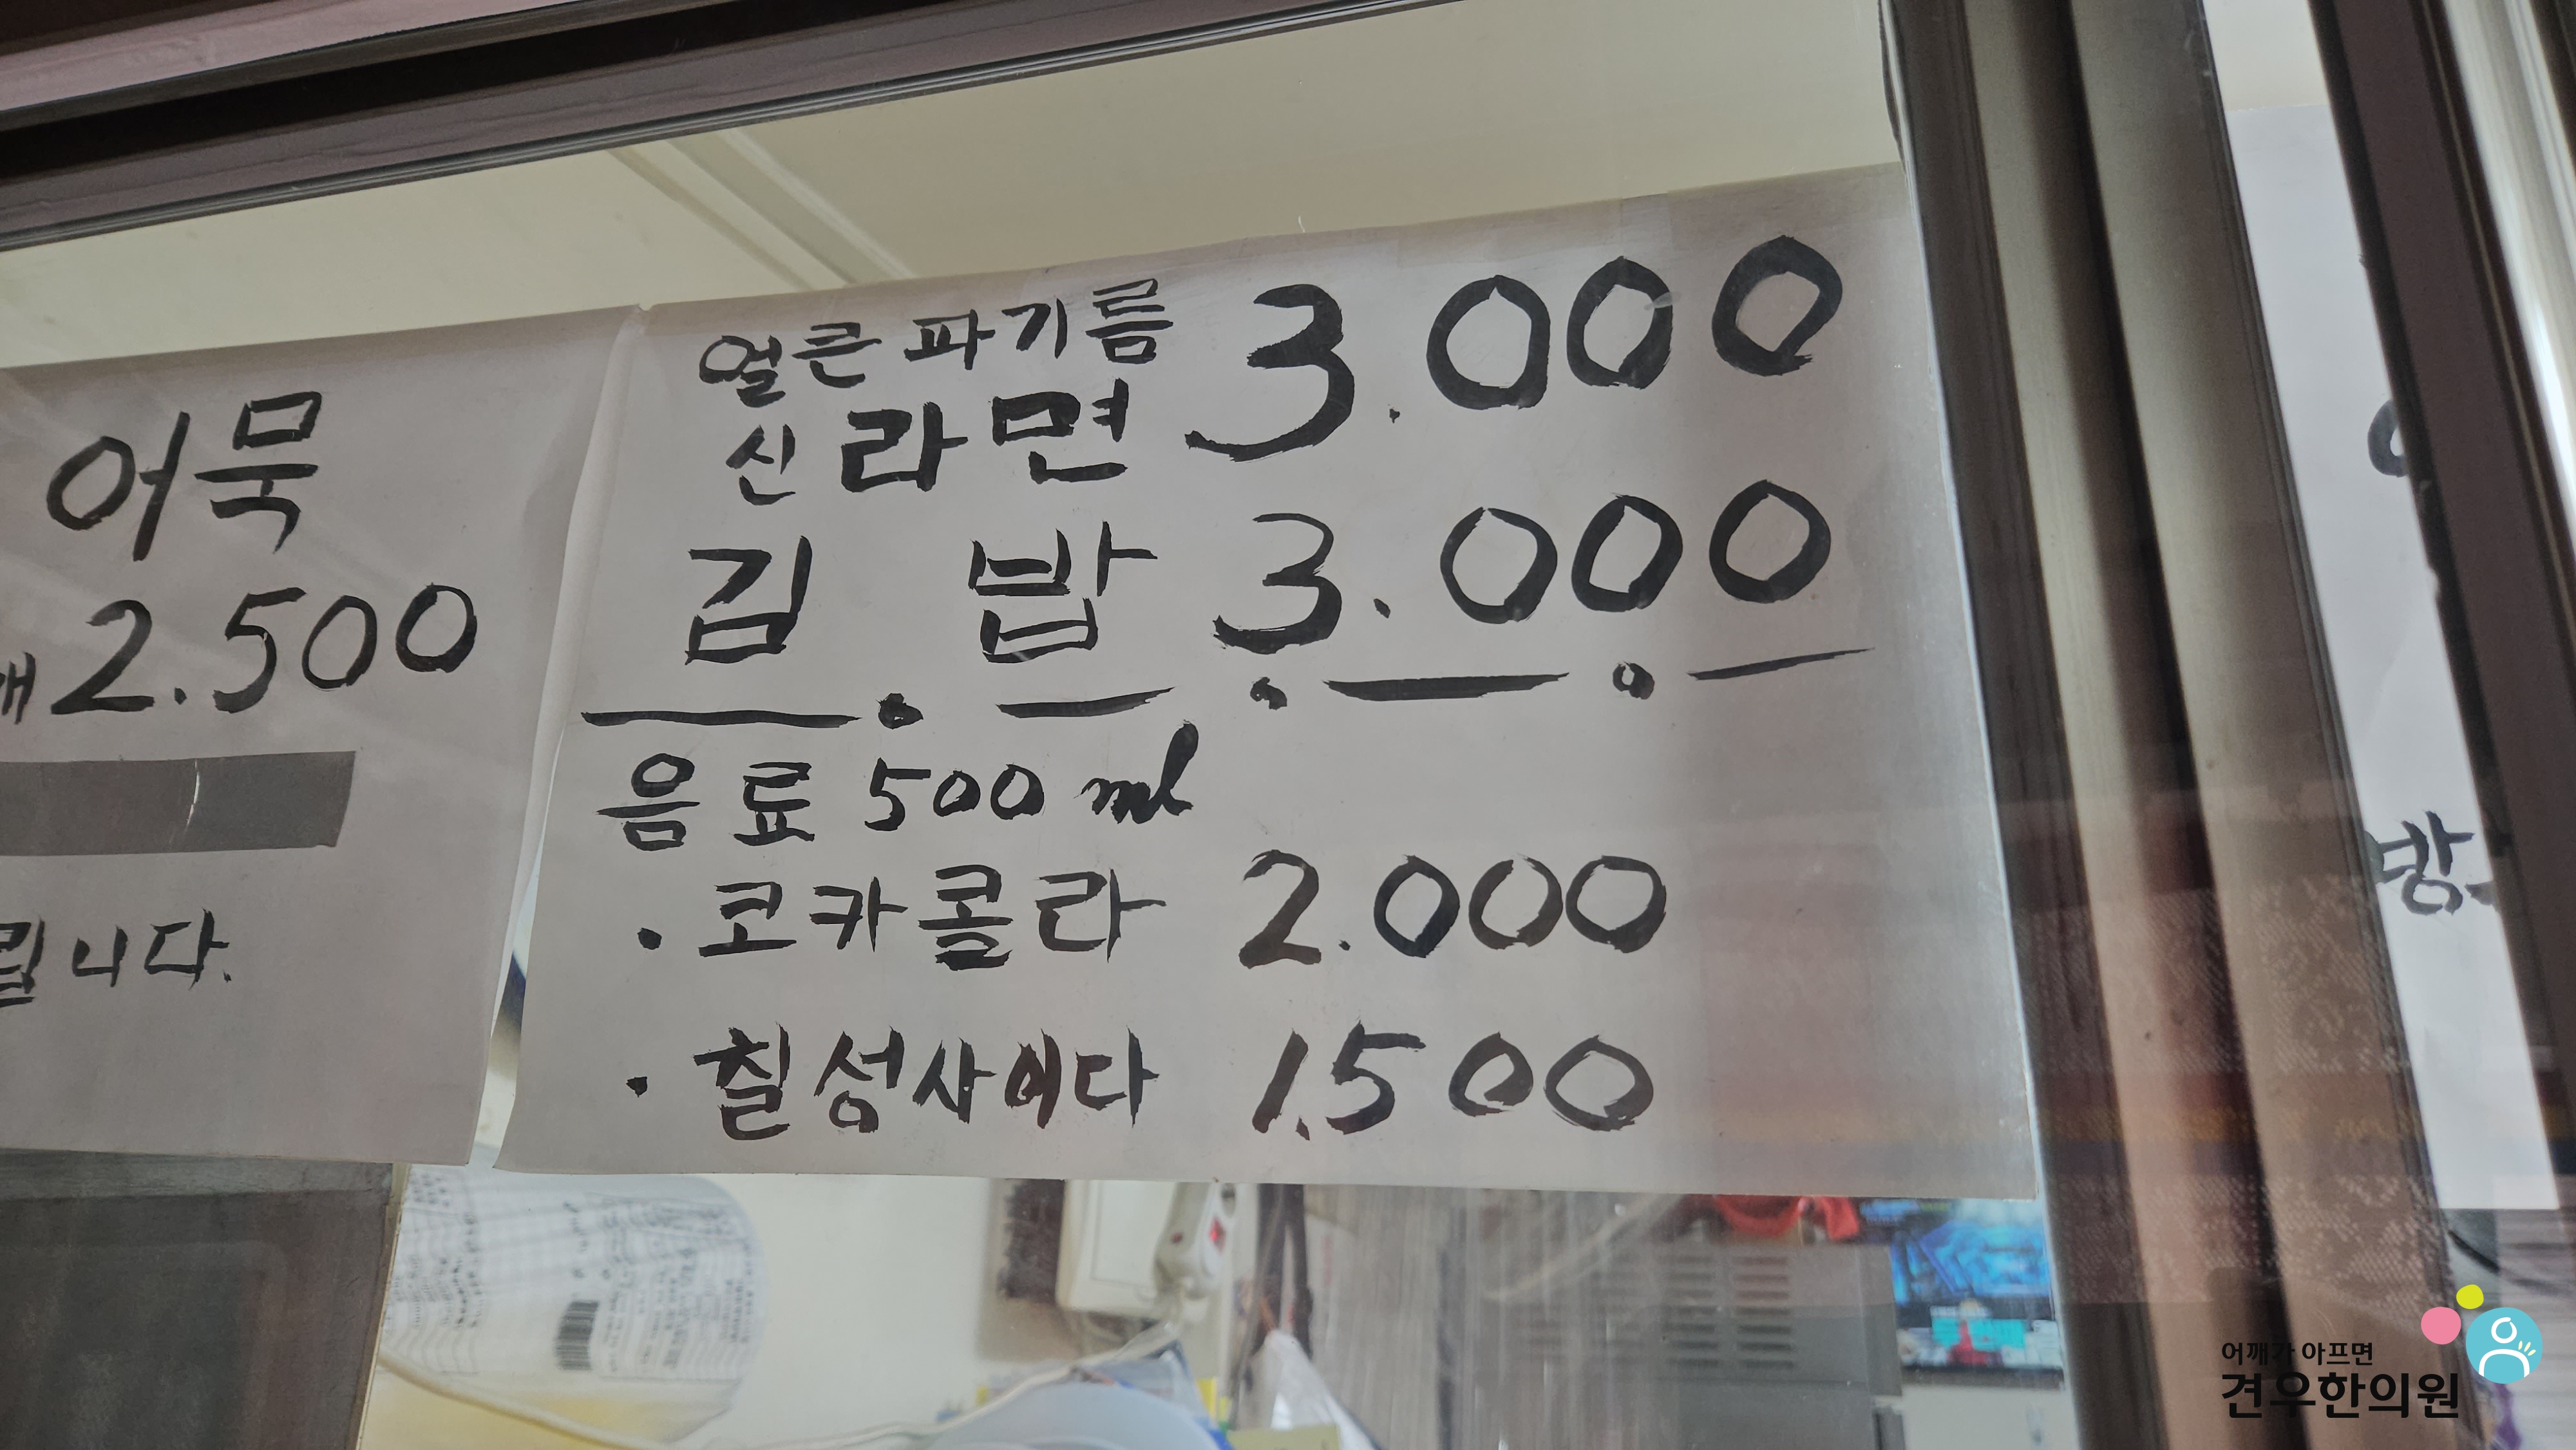 어묵
개 2.500
립니다.
얼큰 파기름
신라면 3.000
김 밥 3.000
음료 500 ml
· 코카콜라 2.000
· 칠성사이다 1.500
방
어깨가 아프면
견우한의원